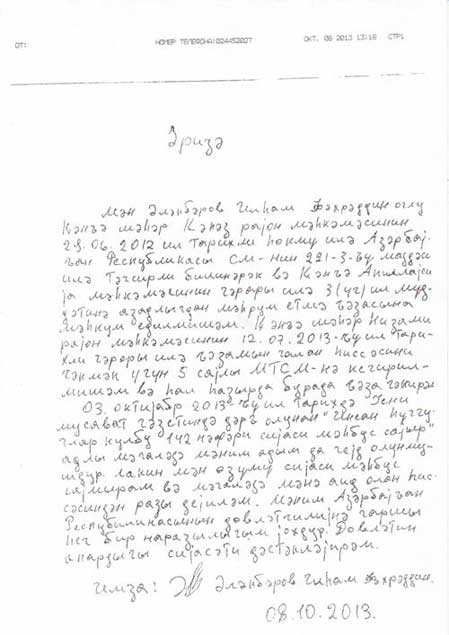 ОТ: НОМЕР ТЕЛЕФОНА:024452027 ОКТ. 08 2013 13:18 СТР1
Әризә
Мән Әләкбәров Илһам Фәхрәддин оглу
Кәнҹә шәһәр Кәпәз рајон мәһкәмәсинин
28.06.2012 ил тарихли һөкмү илә Азәрбај-
ҹан Республикасы ҸМ-нин 221-3-ҹү маддәси
илә тәгсирли билинәрәк вә Кәнҹә Апеллјаси
ја мәһкәмәсинин гәрары илә 3(үч) ил мүд-
дәтинә азадлыгдан мәһрум етмә ҹәзасына
мәһкум едилмишәм. Кәнҹә шәһәр Низами
рајон мәһкәмәсинин 12.07.2013-ҹү ил тари-
хли гәрары илә ҹәзамын галан һиссәсини
чәкмәк үчүн 5 сајлы МТСМ-нә кечирил-
мишәм вә һал һазырда бурада ҹәза чәкирәм
03. октјабр 2013-ҹү ил тарихдә Јени
мусават гәзетиндә дәрҹ олунан "Инсан һүгуг-
лар клубу 142 нәфәри сијаси мәһбус сајыр"
адлы мәгаләдә мәним адым да гејд олунму-
шдур. Лакин мән өзүмү сијаси мәһбус
сајмырам вә мәгаләдә мәнә аид олан һис-
сәсиндән разы дејиләм. Мәним Азәрбајҹан
Республикасынын дөвләтчилијинә гаршы
һеч бир наразылығым јохдур. Дөвләтин
апардығы сијасәти дәстәкләјирәм.
имза: Әләкбәров Илһам Фәхрәддин.
08.10.2013.